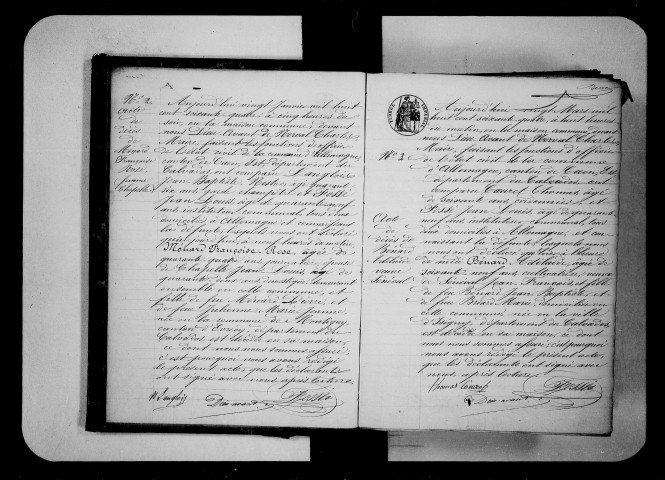 N° 2
acte
de
décès
de
Ménard
Françoise
Rose
femme
Chapelle
Aujourd'hui vingt Janvier mil huit
cent soixante quatre à cinq heures du
soir, en la maison commune, devant
nous Dieu Avant de Nerval Charles
Maire, faisant les fonctions d'officier
de l'état civil de la commune d'Allemagne,
canton de Caen, Est département du
Calvados ont comparu Langlois
Jean Baptiste âgé
six ans garde champêtre et
Jean Louis, âgé de quarante neuf
ans instituteur communal, tous deux
domiciliés à Allemagne et connaissant
la défunte, lesquels nous ont déclaré
à neuf heures du matin,
Ménard Françoise-Rose, âgée de
quarante quatre ans journalière, épouse
de Chapelle Jean Louis âgé de
quarante deux ans domestique, demeurant
ensemble en cette commune, et
fille de feu Ménard Pierre, et
de feue Julienne Marie Jeanne
née en la commune de Montigny,
canton d'Evrecy, département du
Calvados est décédée en sa maison,
ce dont nous nous sommes assuré;
c'est pourquoi nous avons rédigé
le présent acte, que les déclarants
ont signé avec nous après lecture.
Langlois
Dieu avant
N° 3
Acte
de
décès de
Bénard
Adélaïde
veuve
Aujourd'hui vingt Mars mil
huit cent soixante quatre, à huit heures
du matin, en la maison commune, devant
nous Dieu Avant de Nerval Charles
Maire, faisant les fonctions d'officier
de l'état civil de la commune
d'Allemagne, canton de Caen, Est
département du Calvados ont
comparu Thomas, âgé
de soixante ans, cordonnier, et
Jean Louis, âgé de quarante
neuf ans instituteur communal, tous
deux domiciliés à Allemagne, et con-
naissant la défunte, lesquels nous
ont déclaré qu'hier à heure
Bénard Adélaïde, âgée de
soixante neuf ans cultivatrice, veuve
de Jean François et fille
de feu Bénard Jean Baptiste et
de feue Marie, domiciliée en
cette commune, née en la ville
d'Isigny, département du Calvados
est décédée en sa maison, ce dont
nous nous sommes assuré; c'est pourquoi
nous avons rédigé le présent acte,
que les déclarants ont signé avec
nous, après lecture.
Thomas
Dieu avant